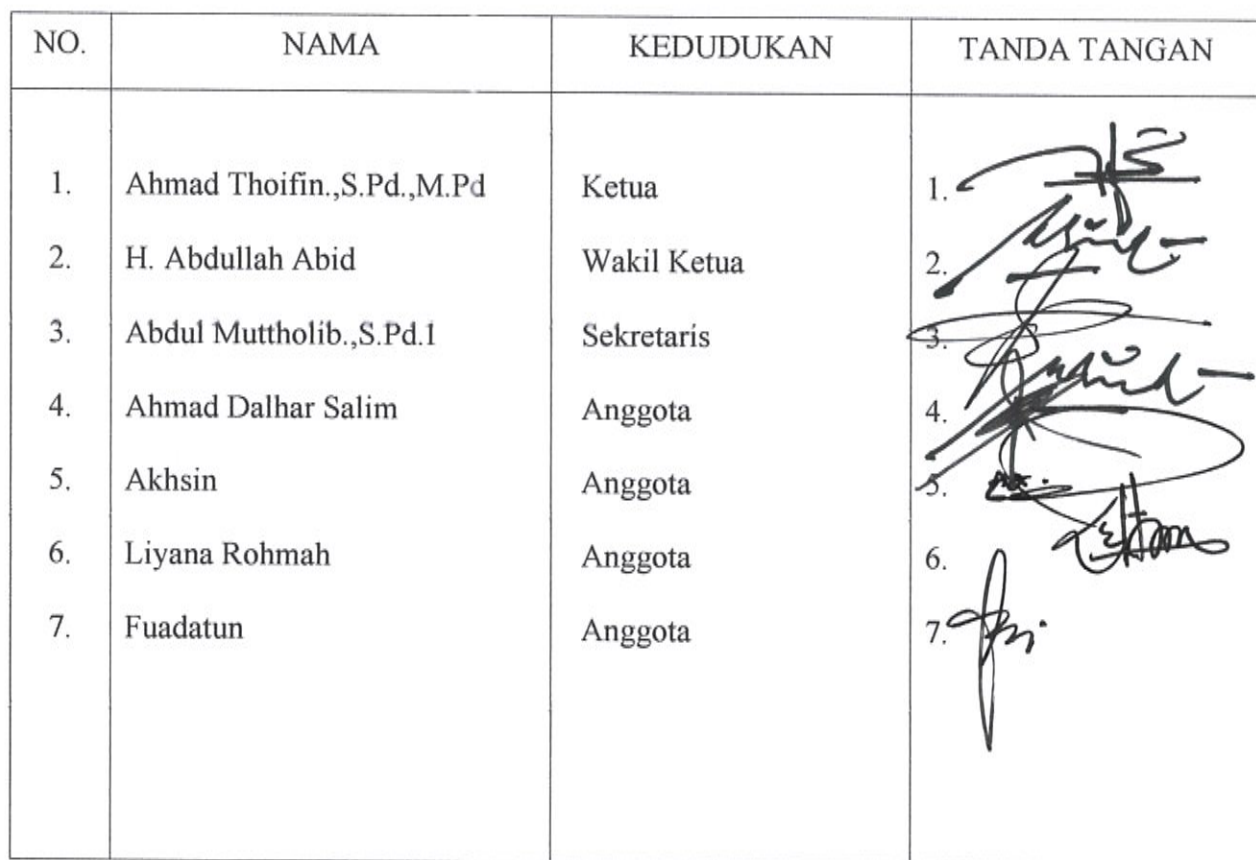 NO. NAMA KEDUDUKAN TANDA TANGAN
1. Ahmad Thoifin.,S.Pd.,M.Pd Ketua 1.
2. H. Abdullah Abid Wakil Ketua 2.
3. Abdul Muttholib.,S.Pd.1 Sekretaris 3.
4. Ahmad Dalhar Salim Anggota 4.
5. Akhsin Anggota 5.
6. Liyana Rohmah Anggota 6.
7. Fuadatun Anggota 7.